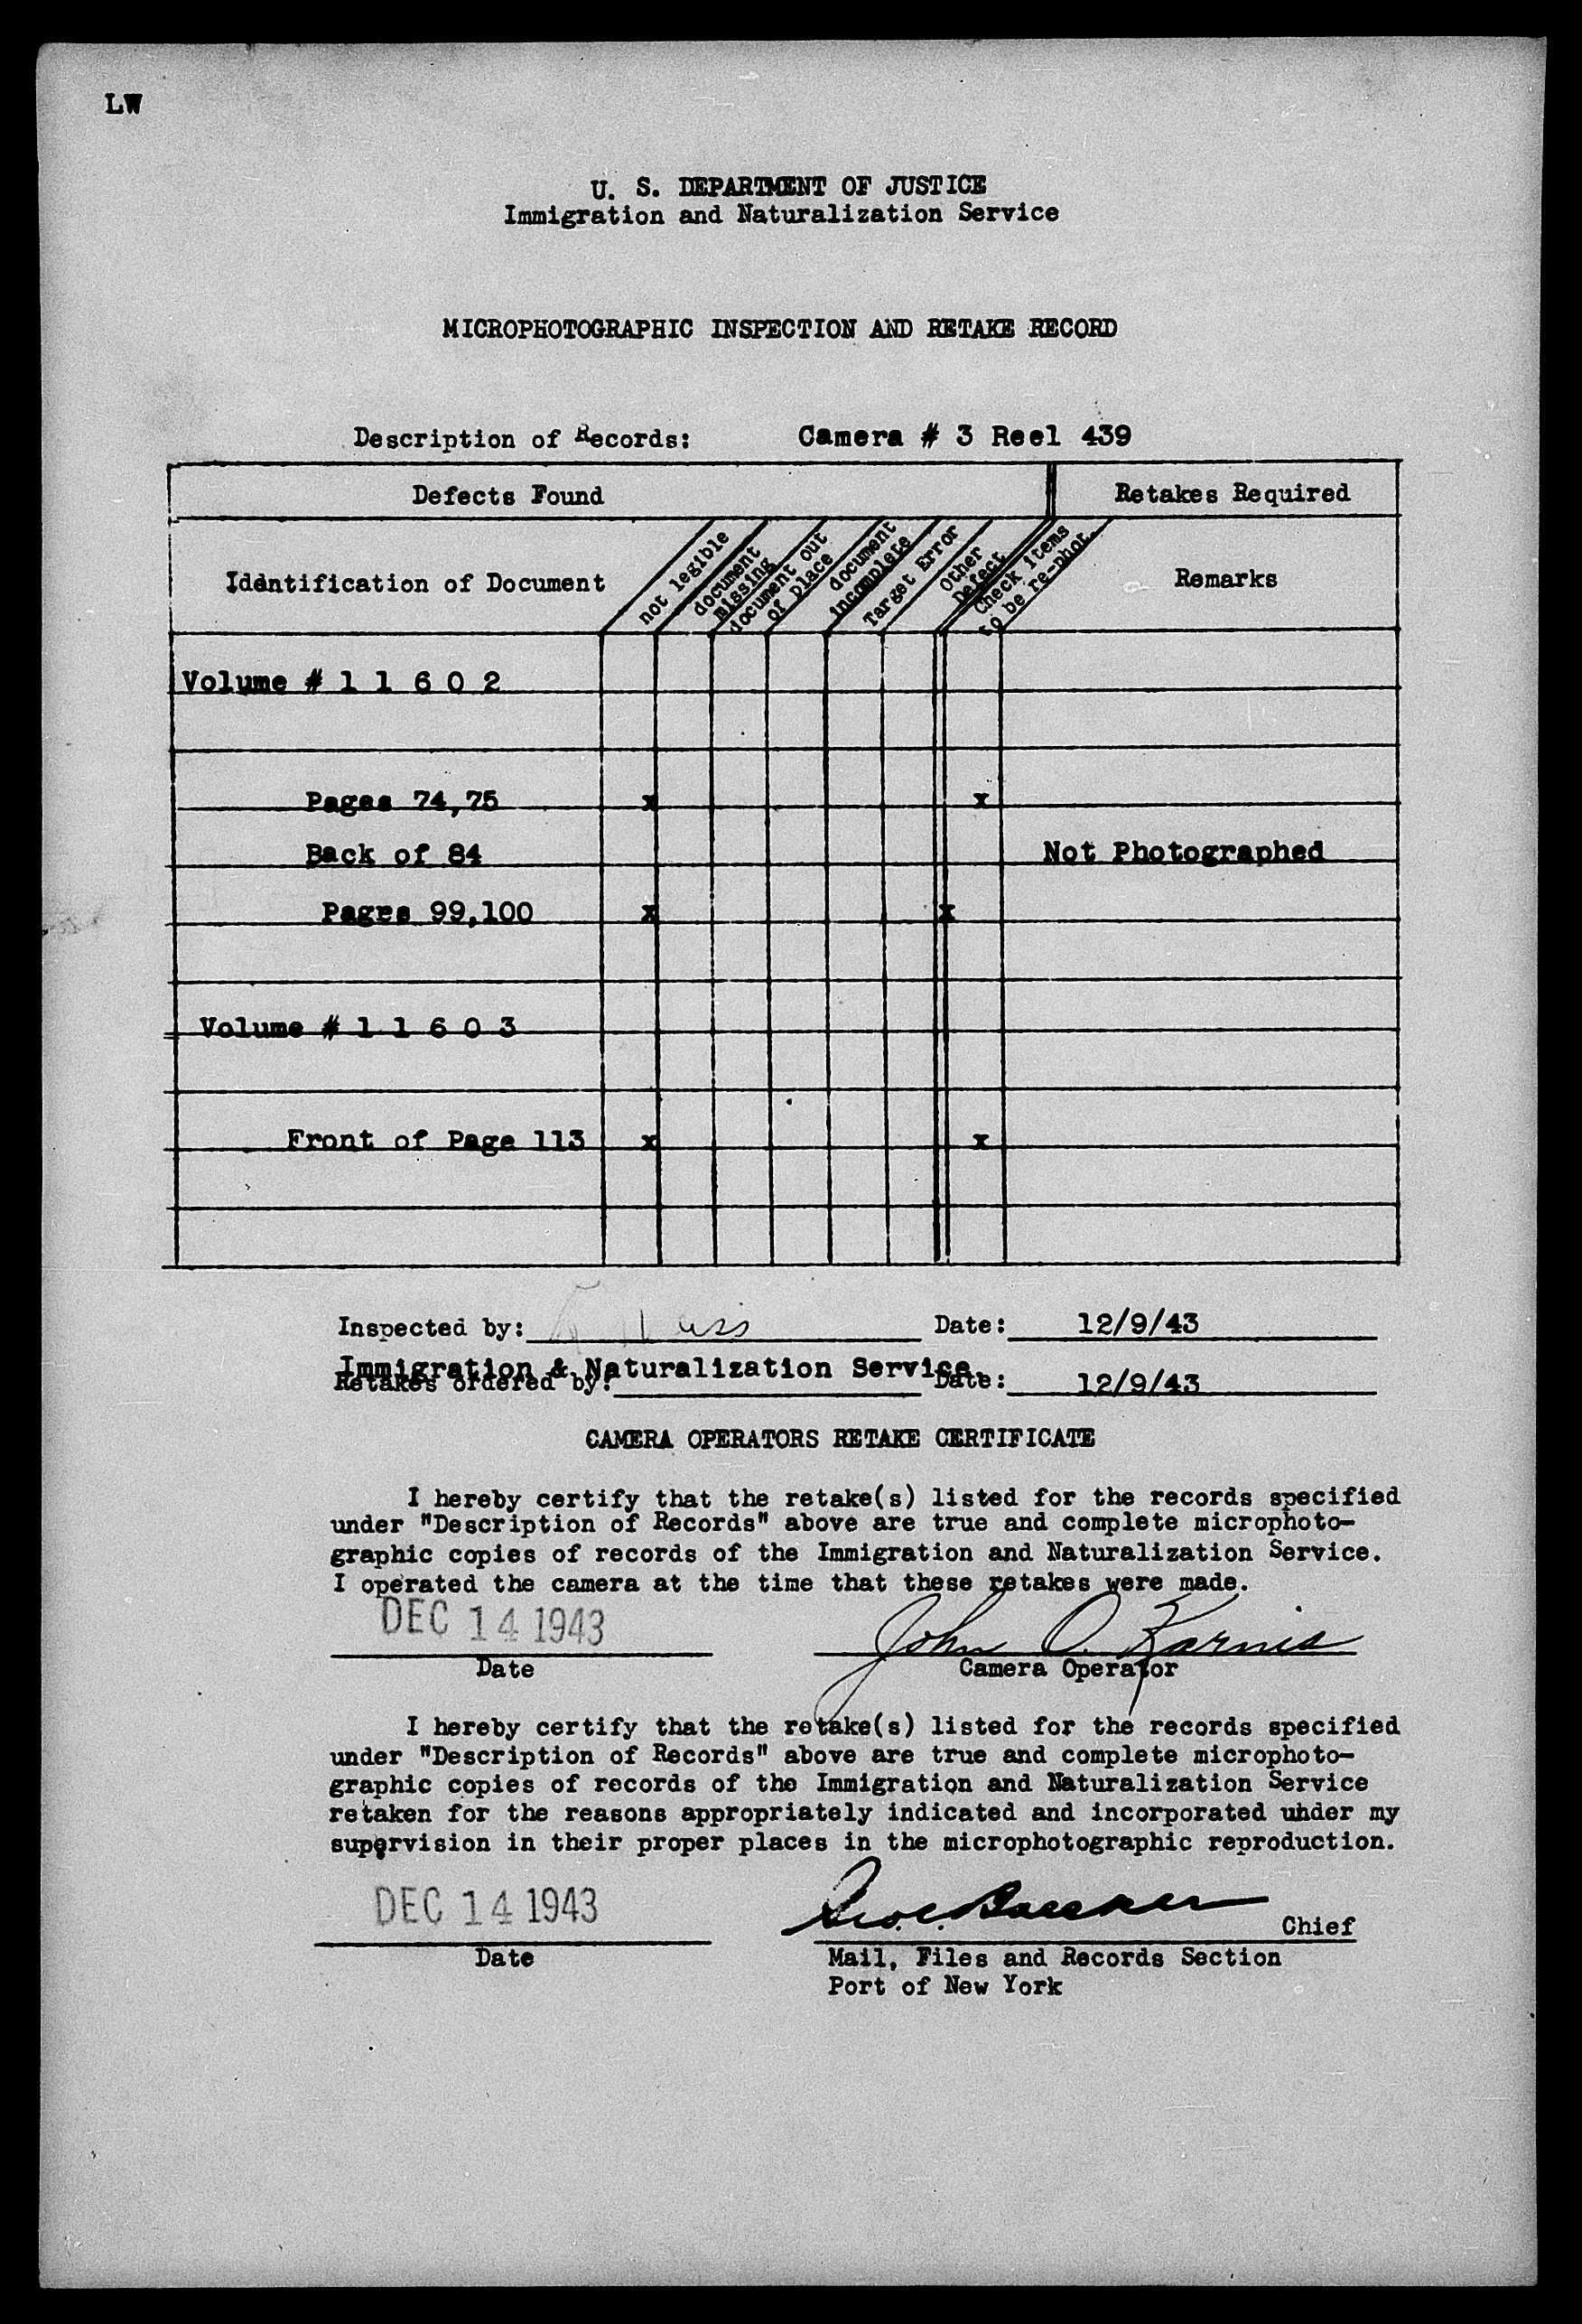 LW
U. S. DEPARTMENT OF JUSTICE
Immigration and Naturalization Service
MICROPHOTOGRAPHIC INSPECTION AND RETAKE RECORD
Description of Records: Camera # 3 Reel 439
Defects Found Retakes Required
Identification of Document
not legible
document missing
document out of place
document incomplete
Target Error
Other Defect
Check items to be re-phot.
Remarks
Volume # 1 1 6 0 2
Pages 74,75 x x
Back of 84 Not Photographed
Pages 99,100 x x
Volume # 1 1 6 0 3
Front of Page 113 x x
Inspected by: Date: 12/9/43
Immigration & Naturalization Service
Retakes ordered by: Date: 12/9/43
CAMERA OPERATORS RETAKE CERTIFICATE
I hereby certify that the retake(s) listed for the records specified
under "Description of Records" above are true and complete microphoto-
graphic copies of records of the Immigration and Naturalization Service.
I operated the camera at the time that these retakes were made.
DEC 14 1943 John O. Karnis
Date Camera Operator
I hereby certify that the retake(s) listed for the records specified
under "Description of Records" above are true and complete microphoto-
graphic copies of records of the Immigration and Naturalization Service
retaken for the reasons appropriately indicated and incorporated under my
supervision in their proper places in the microphotographic reproduction.
DEC 14 1943 Chief
Date Mail, Files and Records Section
Port of New York